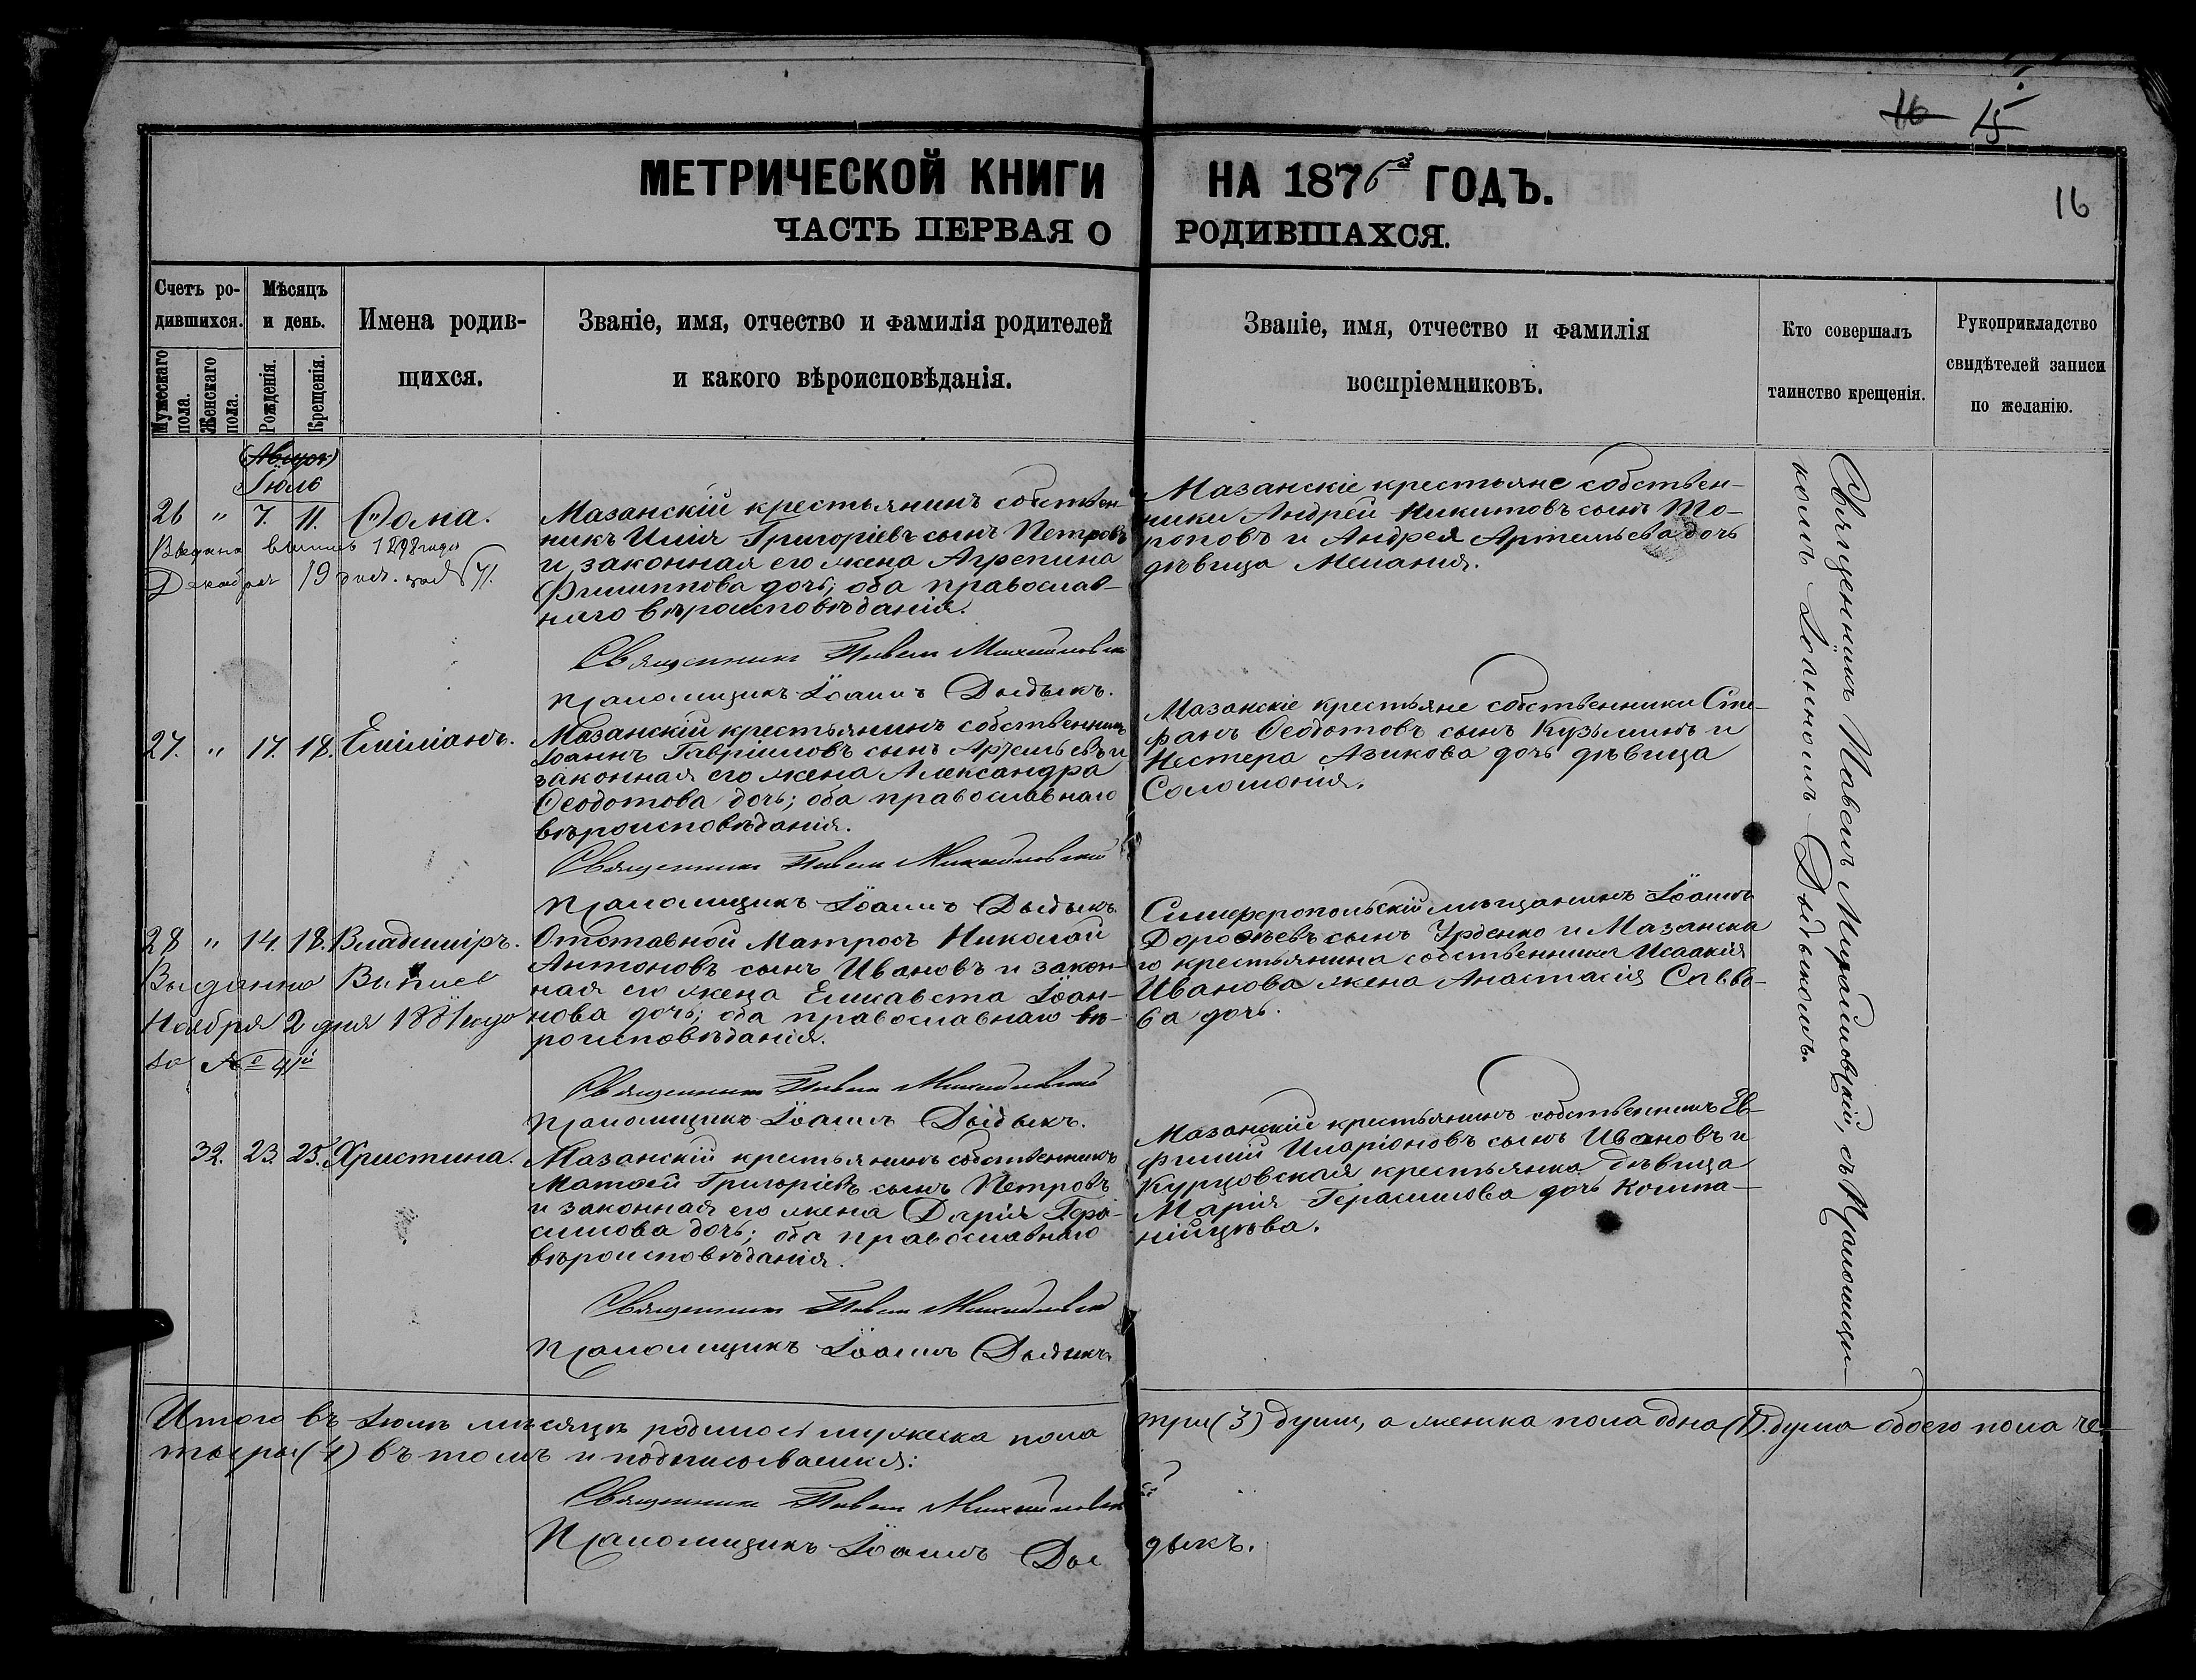 16 15
МЕТРИЧЕСКОЙ КНИГИ НА 1876й ГОДЪ.
16
ЧАСТЬ ПЕРВАЯ О РОДИВШАХСЯ.
Счетъ ро-
дившихся.
Мужескаго пола.
Женскаго пола.
Мѣсяцъ
и день.
Рожденія.
Крещенія.
Имена родив-
щихся.
Званіе, имя, отчество и фамилія родителей
и какого вѣроисповѣданія.
Званіе, имя, отчество и фамилія
воспріемниковъ.
Кто совершалъ
таинство крещенія.
Рукоприкладство
свидѣтелей записи
по желанію.
(Август)
Іюль
26 " 7. 11. Ѳома.
Декабря 19 дня.
Мазанскій крестьянинъ собствен-
никъ Илія Григоріевъ сынъ Петровъ
и законная его жена Агрепина
Филиппова дочь; оба православ-
наго вѣроисповѣданія.
Священникъ Павелъ
Псаломщикъ Іоаннъ Дыдыкъ.
Мазанскіе крестьяне собствен-
ники Андрей Никитовъ сынъ То-
роповъ и Андрея Артемьева дочь
дѣвица Меланія.
27. " 17. 18. Емиліанъ.
Мазанскій крестьянинъ собственникъ
Іоаннъ Гавріиловъ сынъ Артемьевъ и
законная его жена Александра
Ѳеодотова дочь; оба православнаго
вѣроисповѣданія.
Священникъ Павелъ
Псаломщикъ Іоаннъ Дыдыкъ.
Мазанскіе крестьяне собственники Сте-
фанъ Ѳеодотовъ сынъ Кузьминъ и
Нестера Азикова дочь дѣвица
Соломонія.
28 " 14. 18. Владиміръ.
Выданна Выпись
Ноября 2 дня 1881 года
за № 41й
Отставной Матросъ Николай
Антоновъ сынъ Ивановъ и закон-
ная его жена Елисавета Іоан-
нова дочь; оба православнаго вѣ-
роисповѣданія.
Священникъ Павелъ
Псаломщикъ Іоаннъ Дыдыкъ.
Симферопольскій мѣщанинъ Іоаннъ
Дороѳеевъ сынъ Урденко и Мазанска
го крестьянина собственника Исаакія
Иванова жена Анастасія Савво-
ва дочь.
32. 23. 25. Христина.
Мазанскій крестьянинъ собственникъ
Матѳей Григоріевъ сынъ Петровъ
и законная его жена Дарія Гера-
симова дочь; оба православнаго
вѣроисповѣданія.
Священникъ Павелъ
Псаломщикъ Іоаннъ Дыдыкъ
Мазанскій крестьянинъ собственникъ Ев-
фимій Иларіоновъ сынъ Ивановъ и
Курцовская крестьянка дѣвица
Марія Герасимова дочь Компа-
нійцѣва.
Священникъ Павелъ съ Псаломщи-
комъ Іоанномъ Дыдыкомъ.
Итого въ Іюлѣ мѣсяцѣ родилось мужеска пола три (3) души, а женска пола одна (1) душа обоего пола че-
тыри (4) въ томъ и подписываемся:
Священникъ Павелъ
Псаломщикъ Іоаннъ Дыдыкъ.